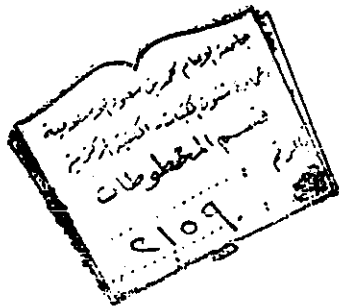 جامعة الإمام محمد بن سعود الإسلامية
عمادة شئون المكتبات - المكتبة المركزية
قسم المخطوطات
الرقم :
٢١٥٩